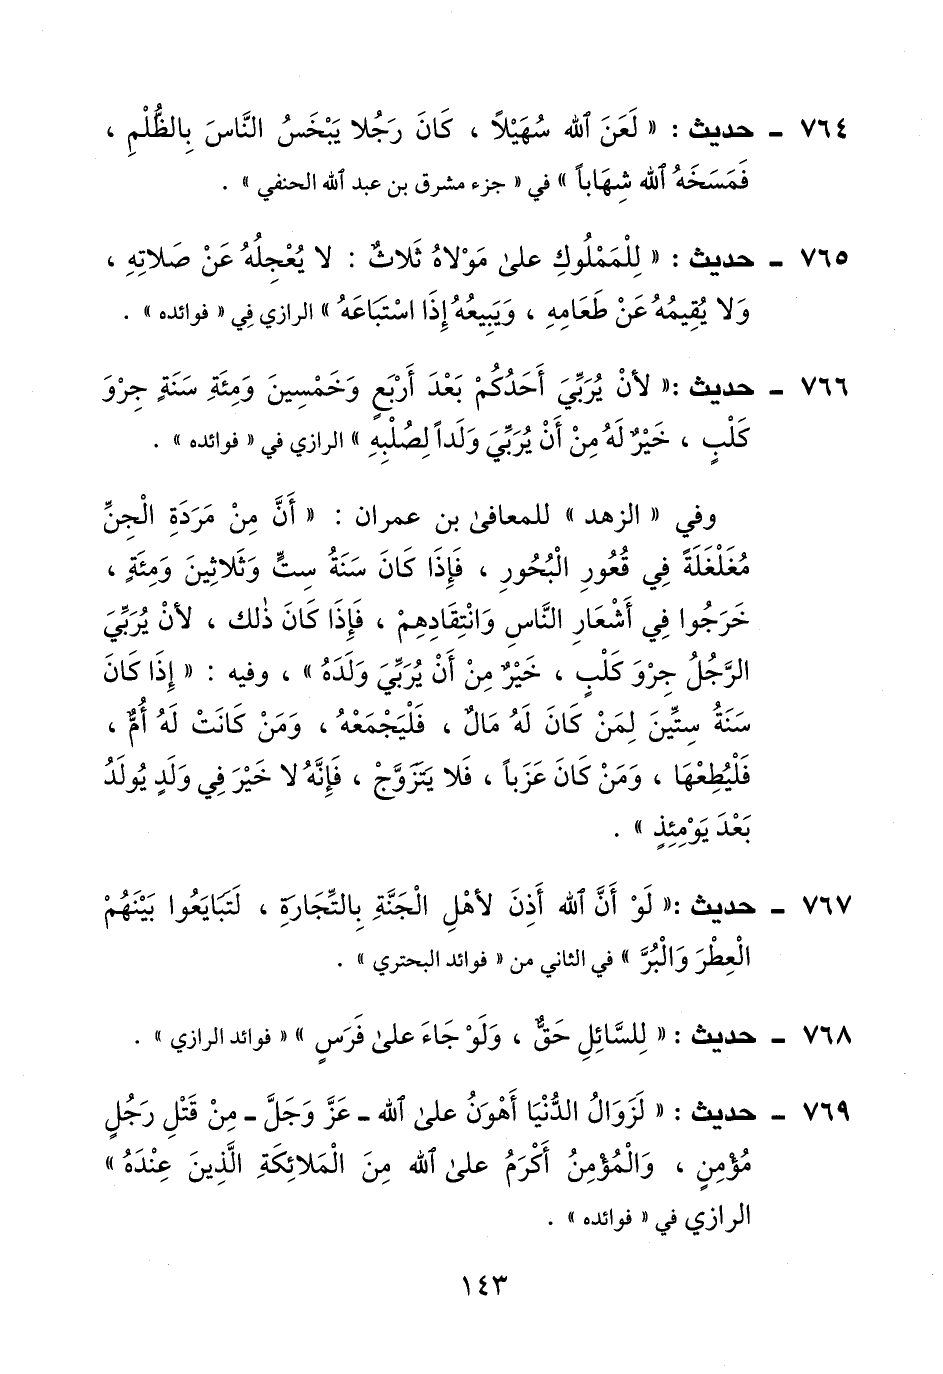 ٧٦٤ ـ حديث : « لَعَنَ ٱلله سُهَيْلاً ، كَانَ رَجُلا يَبْخَسُ النَّاسَ بِالظُّلْمِ ،
فَمَسَخَهُ ٱلله شِهَاباً » في « جزء مشرق بن عبد ٱلله الحنفي » .
٧٦٥ ـ حديث : « لِلْمَمْلُوكِ علىٰ مَوْلاهُ ثَلاثٌ : لا يُعْجِلُهُ عَنْ صَلاتِهِ ،
وَلا يُقِيمُهُ عَنْ طَعَامِهِ ، وَيَبِيعُهُ إِذَا اسْتَبَاعَهُ » الرازي فِي « فوائده » .
٧٦٦ ـ حديث :« لأنْ يُرَبِّيَ أَحَدُكُمْ بَعْدَ أَرْبَعٍ وَخَمْسِينَ وَمِئَةِ سَنَةٍ جِرْوَ
كَلْبٍ ، خَيْرٌ لَهُ مِنْ أَنْ يُرَبِّيَ وَلَداً لِصُلْبِهِ » الرازي في « فوائده » .
وفي « الزهد » للمعافىٰ بن عمران : « أَنَّ مِنْ مَرَدَةِ الْجِنِّ
مُغَلْغَلَةً فِي قُعُورِ الْبُحُورِ ، فَإِذَا كَانَ سَنَةُ سِتٍّ وَثَلاثِينَ وَمِئَةٍ ،
خَرَجُوا فِي أَشْعَارِ النَّاسِ وَانْتِقَادِهِمْ ، فَإِذَا كَانَ ذٰلك ، لأنْ يُرَبِّيَ
الرَّجُلُ جِرْوَ كَلْبٍ ، خَيْرٌ مِنْ أَنْ يُرَبِّيَ وَلَدَهُ » ، وفيه : « إِذَا كَانَ
سَنَةُ سِتِّينَ لِمَنْ كَانَ لَهُ مَالٌ ، فَلْيَجْمَعْهُ ، وَمَنْ كَانَتْ لَهُ أُمٌّ ،
فَلْيُطِعْهَا ، وَمَنْ كَانَ عَزَباً ، فَلا يَتَزَوَّجْ ، فَإِنَّهُ لا خَيْرَ فِي وَلَدٍ يُولَدُ
بَعْدَ يَوْمِئِذٍ » .
٧٦٧ ـ حديث :« لَوْ أَنَّ ٱلله أَذِنَ لأهْلِ الْجَنَّةِ بِالتِّجَارَةِ ، لَتَبَايَعُوا بَيْنَهُمْ
الْعِطْرَ وَالْبُرَّ » في الثاني من « فوائد البحتري » .
٧٦٨ ـ حديث : « لِلسَّائِلِ حَقٌّ ، وَلَوْ جَاءَ علىٰ فَرَسٍ » « فوائد الرازي » .
٧٦٩ ـ حديث : « لَزَوَالُ الدُّنْيَا أَهْوَنُ علىٰ ٱلله ـ عَزَّ وَجَلَّ ـ مِنْ قَتْلِ رَجُلٍ
مُؤْمِنٍ ، وَالْمُؤْمِنُ أَكْرَمُ علىٰ ٱلله مِنَ الْمَلائِكَةِ الَّذِينَ عِنْدَهُ »
الرازي في « فوائده » .
١٤٣